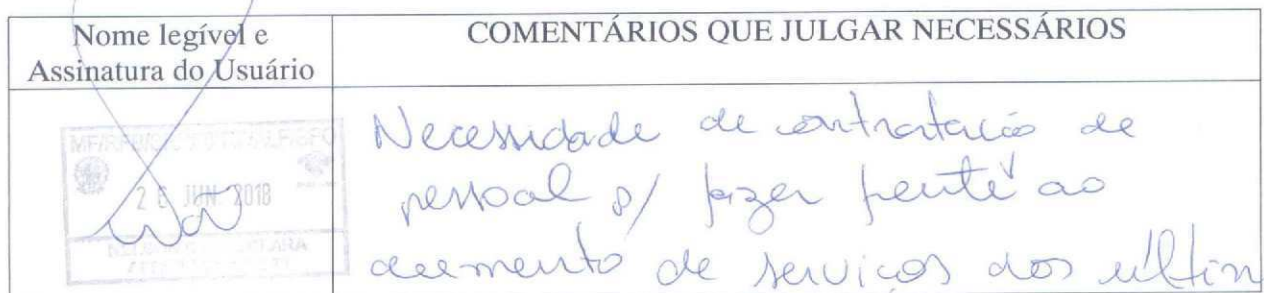 Nome legível e
Assinatura do Usuário
COMENTÁRIOS QUE JULGAR NECESSÁRIOS
26 JUN 2018
Necessidade de contratação de
pessoal p/ fazer frente ao
aumento de serviços dos últim